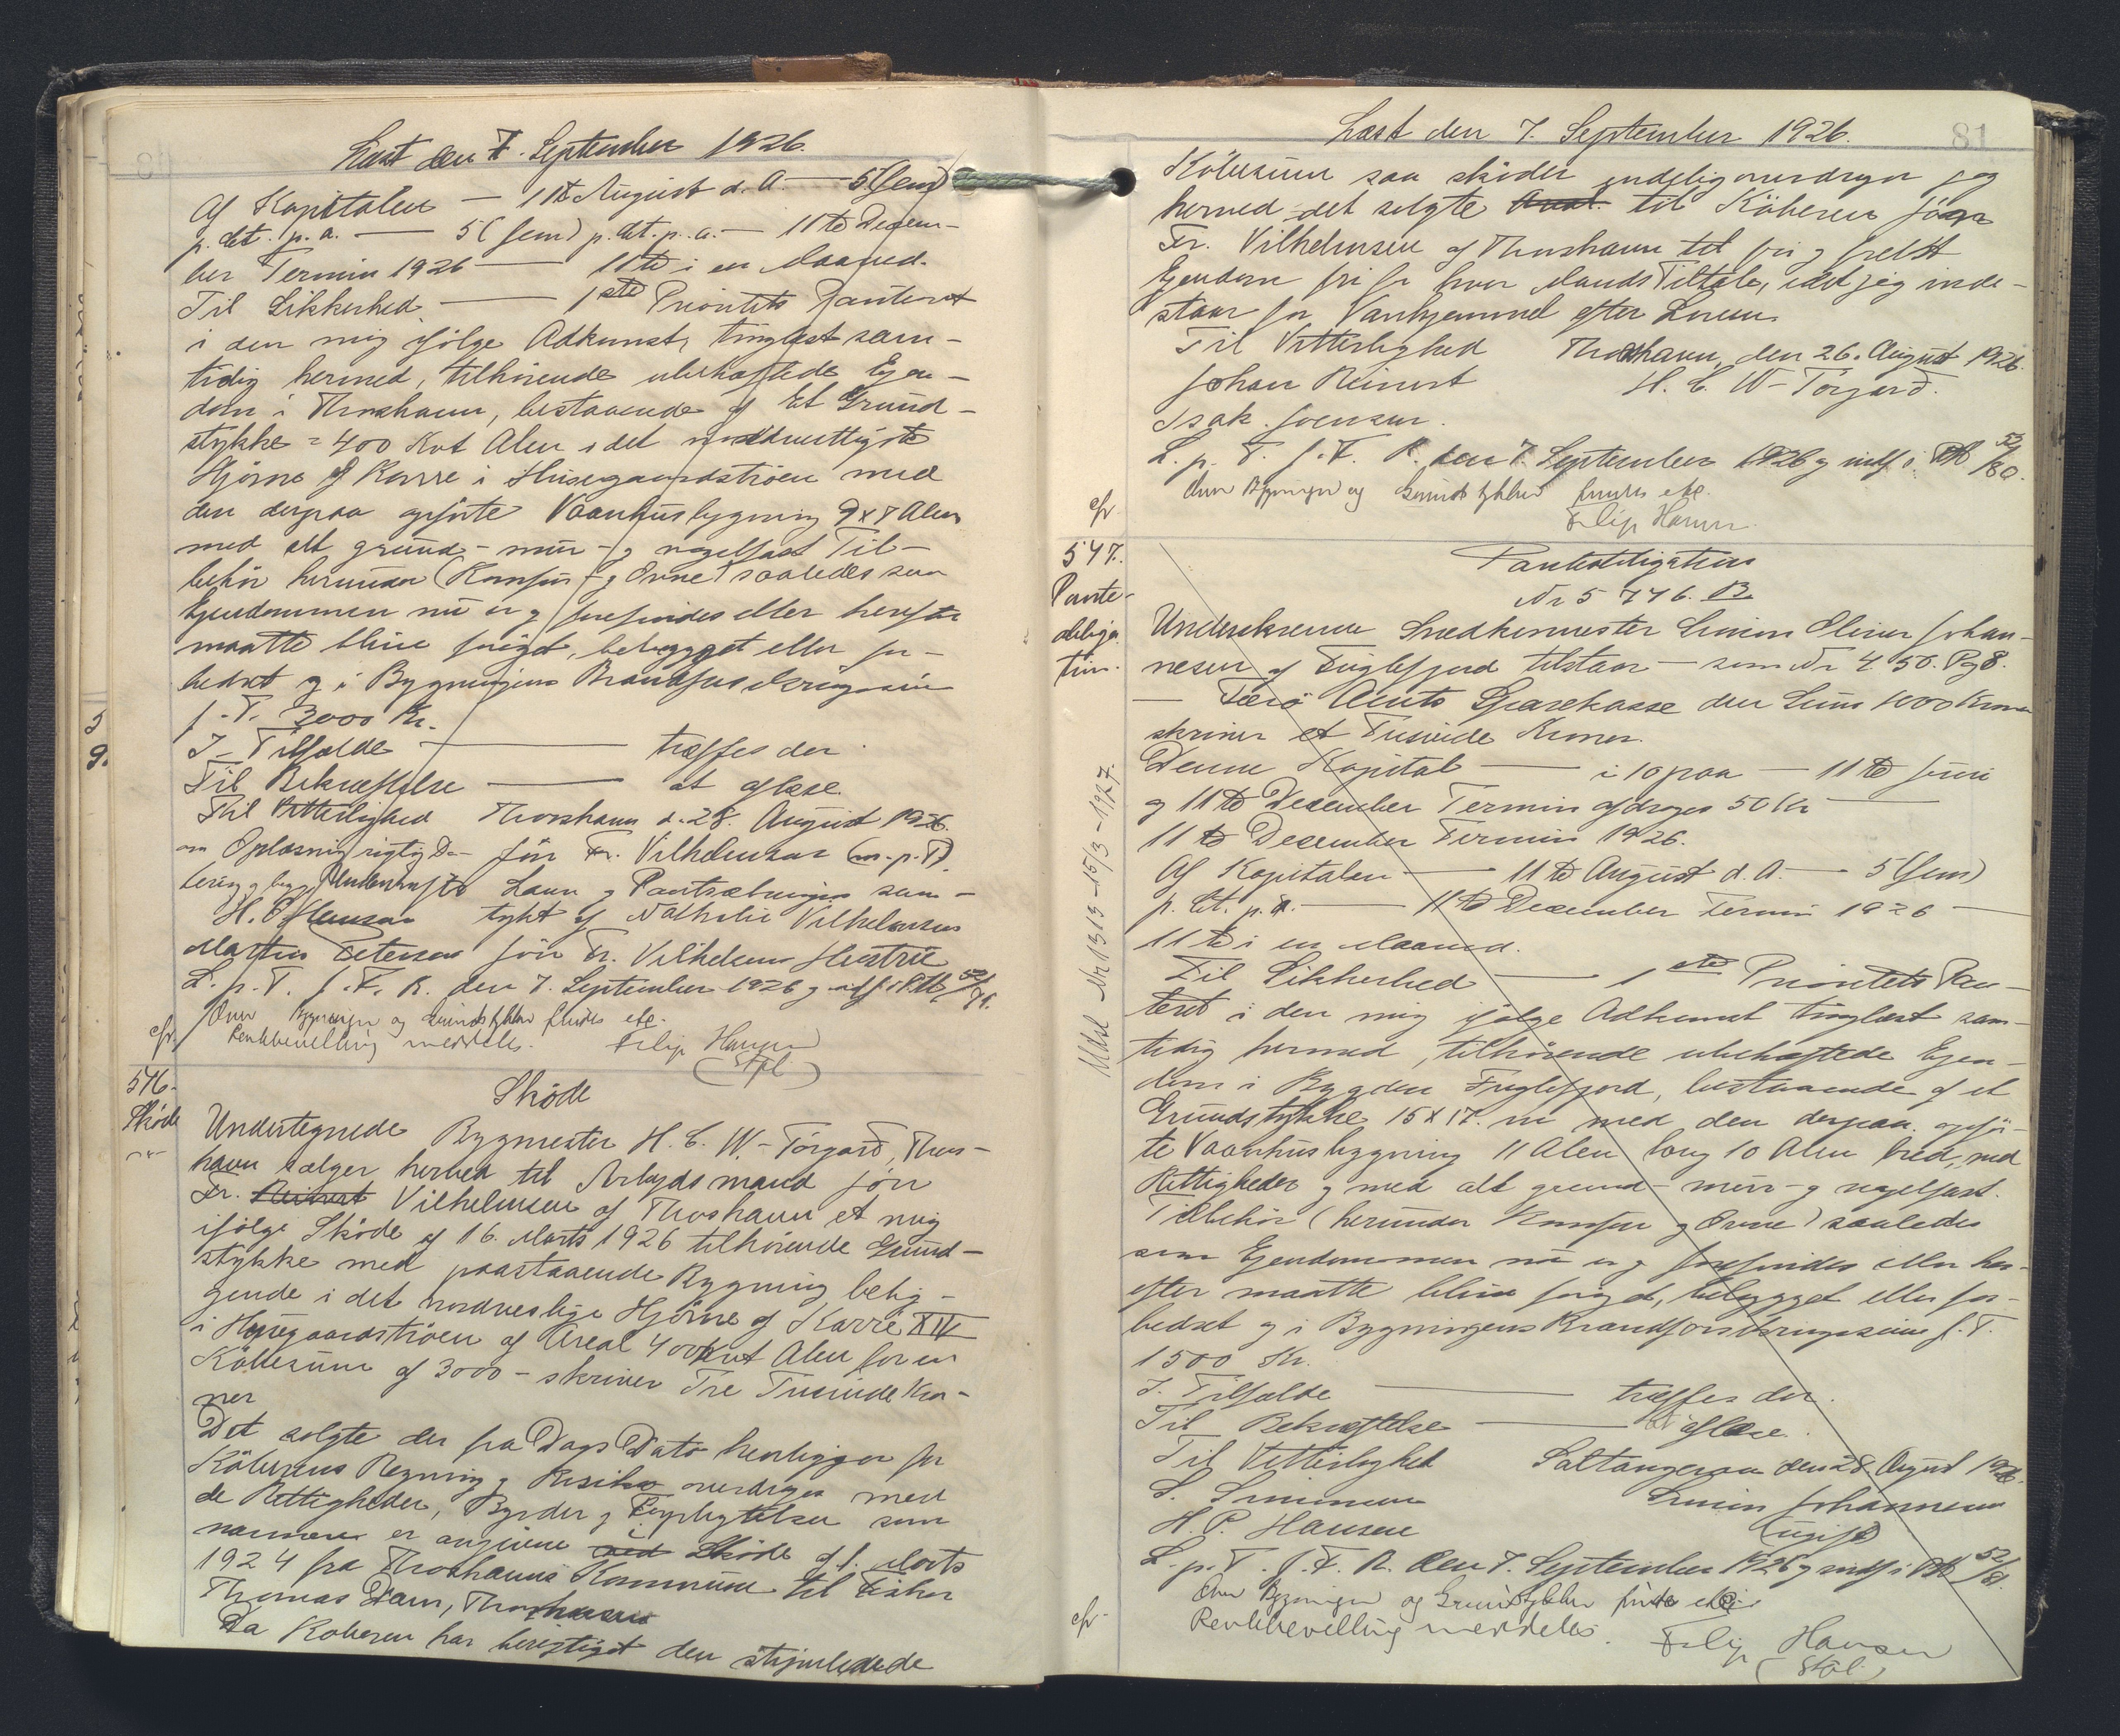 Læst den 7. September 1926.
Af Kapitalen — 11te August d. A. — 5 (fem)
p. Ct. p. a. — 5 (fem) p. Ct. p. a. — 11te Decem-
ber Termin 1926 — 11te i en Maaned.
Til Sikkerhed — 1ste Prioritets Panteret
i den mig ifölge Adkomst, tinglæst sam-
tidig hermed, tilhörende ubehæftede Ejen-
dom i Thorshavn, bestaaende af Et Grund-
stykke = 400 Kvt Alen i det nordvestligste
Hjörne af Karre i Húsagaardströen med
den derpaa opförte Vaanhusbygning 9 x 8 Alen
med alt grund- mur- og nagelfast Til-
behör herunder (Komfur og Ovne) saaledes som
Ejendommen nu er og forefindes eller herefter
maatte blive foröget, bebygget eller for-
bedret og i Bygningens Brandforsikringssum
f. T. 3000 Kr.
I Tilfælde — træffes der
Til Bekræftelse — at aflæse.
Til Vitterlighed Thorshavn d. 28. August 1926.
om Oplæsning rigtig Da- Jón Fr. Vilhelmsen (m. p. P.)
tering og begge Underskrifter Laan og Pantsætningen sam-
H. C. Hansen tykt af Nathalie Vilhelmsen
Martin Petersen Jón Fr. Vilhelmsens Hustru
L. p. T. f. F. R. den 7. September 1926 og indf. i PtB 52/79.
Over Bygninger og Grundstykker findes ofte.
cfr. Rentebevilling meddeles. Filip Hansen
(Stpl)
546. Sköde
Sköde Undertegnede Bygmester H. C. W-Tórgarð, Thors-
havn sælger herved til Arbejdsmand Jón
Fr. Vilhelmsen af Thorshavn et mig
ifölge Sköde af 16. Marts 1926 tilhörende Grund-
stykke med paastaaende Bygning belig-
gende i det nordvestlige Hjörne af Karré XIV
i Húsagaardströen af Areal 400 Kvt Alen for en
Köbesum af 3000 - skriver Tre Tusinde Kro-
ner
Det solgte der fra Dags Dato henligger for
Köberens Regning og Risiko overdrages med
de Rettigheder, Byrder og Forpligtelser som
nærmere er angivne i Sköde af 1. Marts
1924 fra Thorshavns Kommune til Fisker
Thomas Dam, Thorshavn
Da Köberen har berigtiget den stipulerede
Læst den 7. September 1926. 81
Köbesum saa sköder endelig overdrager jeg
herved det solgte til Köberen Jógv
Fr. Vilhelmsen af Thorshavn til fri og frelst
Ejendom fri for hver Mands Tiltale, idet jeg inde-
staar for Vanhjemmel efter Loven
Til Vitterlighed Thorshavn, den 26. August 1926.
Johan Reinert H. C. W-Tórgarð.
Isak Joensen.
L. p. T. f. F. R. den 7. September 1926 og indf. i PtB 52/80.
Over Bygninger og Grundstykker findes ofte.
cfr. Filip Hansen
547. Panteobligation
Pante- Nr 5776. B
obliga Underskrevne Snedkermester Simon Oliver Johan-
tion. nesen af Fuglefjord tilstaar — som Nr 456. Pg 8.
— Færö Amts Sparekasse den Sum 1000 Kroner
skriver et Tusinde Kroner.
Denne Kapital — i 10 paa — 11te Juni
og 11te December Termin afdrages 50 Kr —
11te December Termin 1926.
Af Kapitalen — 11te August d. A. — 5 (fem)
p. Ct. p. a. — 11te December Termin 1926 —
11te i en Maaned.
Til Sikkerhed — 1ste Prioritets Pan-
teret i den mig ifölge Adkomst tinglæst sam-
tidig hermed, tilhörende ubehæftede Ejen-
dom i Bygden Fuglefjord, bestaaende af et
Grundstykke 15 x 17. m med den derpaa opför-
te Vaanhusbygning 11 Alen lang 10 Alen bred, med
Rettigheder og med alt grund- mur- og nagelfast.
Tilbehör (herunder Komfur og Ovne) saaledes
som Ejendommen nu er og forefindes eller her-
efter maatte blive foröget, bebygget eller for-
bedret og i Bygningens Brandforsikringssum f. T.
1500 Kr.
I Tilfælde — træffes der.
Til Bekræftelse — at aflæse.
Til Vitterlighed Saltangeraa den 28. August 1926.
S. Simonsen Simon Johannesen
H. P. Hansen (ugift)
L. p. T. f. F. R. den 7. September 1926 og indf. i PtB 52/81.
Over Bygninger og Grundstykker findes ofte.
cfr. Rentebevilling meddeles. Filip Hansen
(Stpl.)
Udsl Nr 1313-15/3-1927.